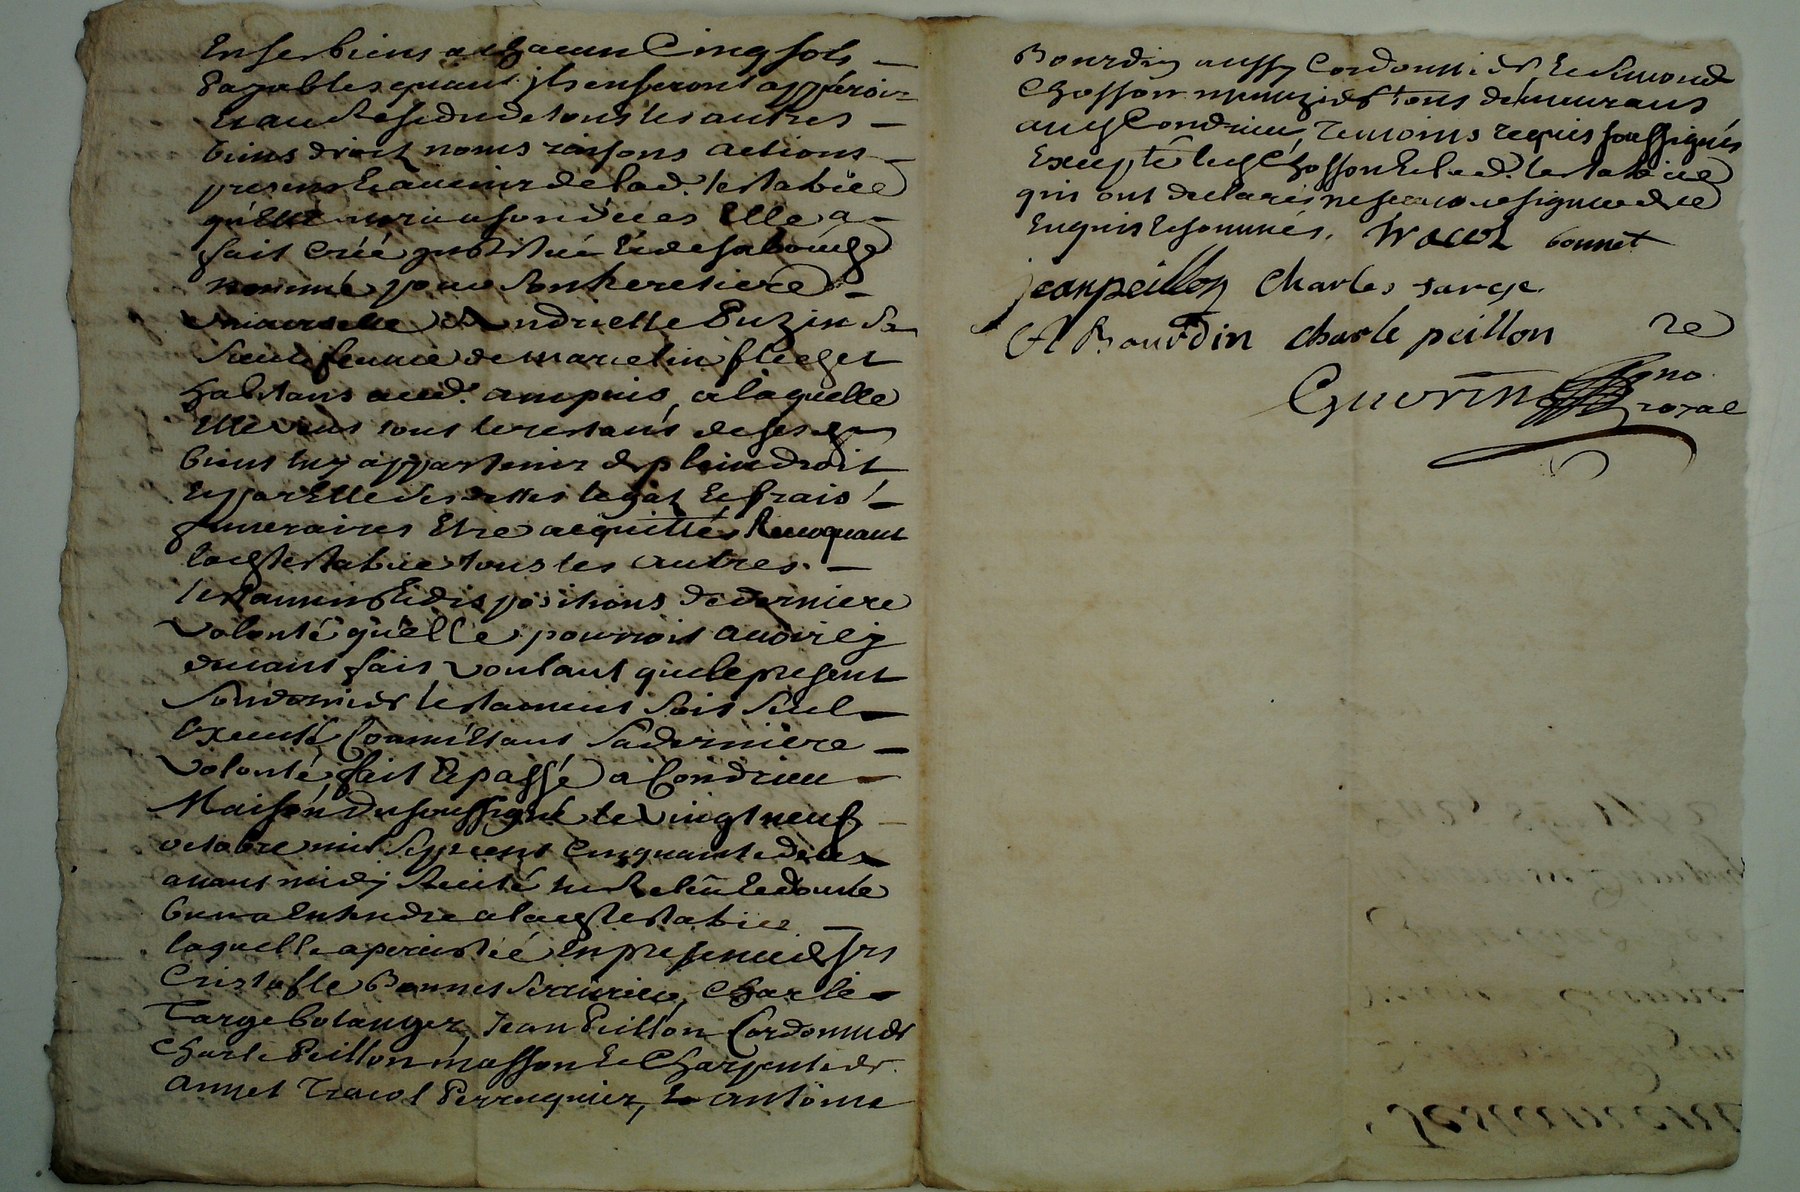 En ses biens a chacun Cinq sols
Payables quant ils en seront appérois
Et au Residu de tous les autres
biens droit noms raisons actions
presens Et avenir de lad. testatrice
qu'Elle
fait créé institué Et de sa bouche
nommé pour Son heretiere
universelle Andriette Puzin Sa
Sœur femme de marcelin fleget
habitans aud. ampuis, a laquelle
Elle veut tout le restant de ses
biens luy appartenir de plein droit
Et par Elle ses dettes legat Et frais
funeraires Etre acquittés Revoquant
lad. testatrice tous les autres
testamens Et dispositions de derniere
volonté qu'elle pourroit avoir cy
devant fait voulant que le present
Son dernier testament Soit Seul
Executé Comme Etant Sa derniere
volonté, fait Et passé a Condrieu
Maison du soussigné le vingt neuf
octobre mil Sept cent Cinquante deux
avant midy Recité leu Releu Et donné
bien a Entendre a lad. testatrice
laquelle a persisté En presence de srs
Cristofle Bonnet Serrurier, Charle
Targe bolanger, Jean Peillon Cordonnier
Charle Peillon masson Et Charpentier
annet Tracol Perruquier, Et antoine
Bourdin aussy Cordonnier, Et Simond
Chosson munuzier tous demeurans
aud. Condrieu, Temoins requis soussignés
Excepté led. Chosson Et lad. testatrice
qui ont declarés ne scavoir signer de ce
Enquis Et sommés. tracol bonnet
jean peillon Charles targe
A Bourdin charle peillon
Guerin no.
royal
Testament